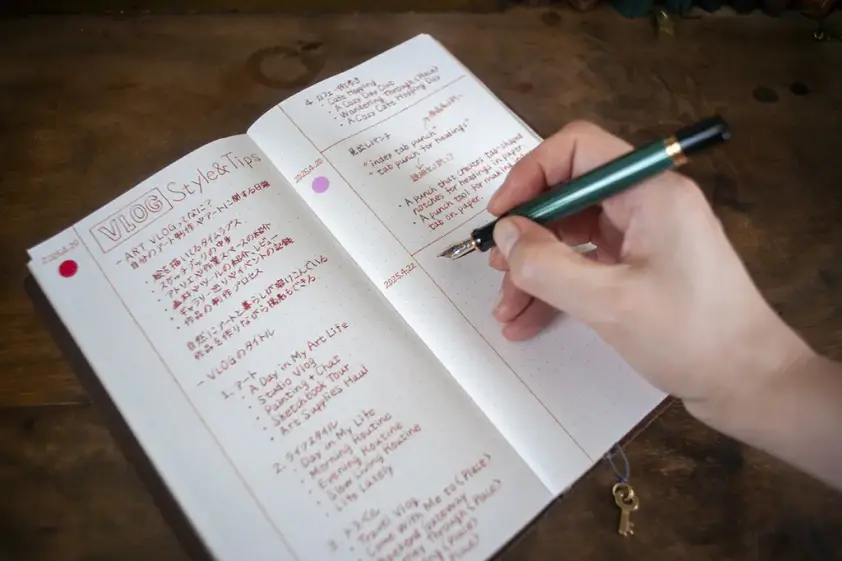 VLOG Style&Tips
- ART VLOGってなに?
自身のアート制作やアートに関する日常
・絵を描いているタイムラプス
・スケッチブックの中身
・アトリエや作業スペースの紹介
・画材やツールの紹介・レビュー
・ギャラリー巡りやイベントの記録
・作品の制作プロセス
自然にアートと暮らしが溶けこんでいる
作品を作りながら
- VLOGのタイトル
1. アート
・A Day in My Art Life
・Studio Vlog
・Painting + Chat
・Sketchbook Tour
・Art Supplies Haul
2. ライフスタイル
・Day in My Life
・Morning Routine
・Evening Routine
・Slow Living Routine
・Life Lately
3. トラベル
・Travel Vlog
・Come With Me to (Place)
・Weekend Getaway
・Journey Through (Place)
(Place)
4. カフェ・街歩き
・Cafe Hopping
・A Cozy Day Out
・Wandering Through (Place)
・A Cozy Cafe Hopping Day
2025.4.20
見出しパンチ
"index tab punch"
"tab punch for headings"
・A punch that creates tab-shaped
notches for headings in paper
・A punch tool for making
tab on paper.
2025.4.22